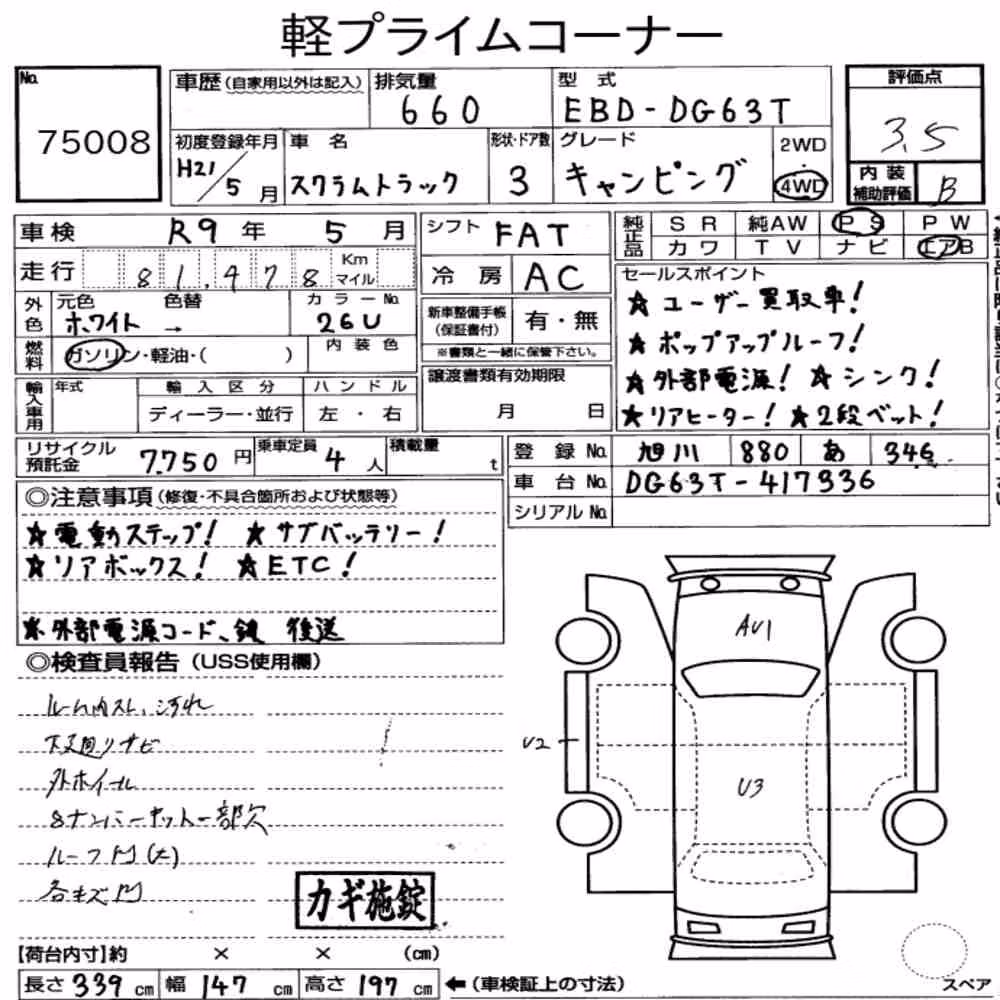 軽プライムコーナー
No. 75008
車歴(自家用以外は記入) 排気量 660 型式 EBD-DG63T 評価点 3.5
初度登録年月 H21/5月 車名 スクラムトラック 形状・ドア数 3 グレード キャンピング 2WD・4WD 内装補助評価 B
車検 R9年 5月 シフト FAT 純正品 SR 純AW PS PW
カワ TV ナビ エアB
走行 81,978 Km マイル 冷房 AC
外色 元色 ホワイト → 色替 カラーNo. 26U 新車整備手帳(保証書付) 有・無
※書類と一緒に保管下さい。
燃料 ガソリン・軽油・( ) 内装色
輸入車用 年式 輸入区分 ディーラー・並行 ハンドル 左・右 譲渡書類有効期限 月 日
セールスポイント
★ユーザー買取車!
★ポップアップルーフ!
★外部電源! ★シンク!
★リアヒーター! ★2段ベット!
リサイクル預託金 7,750円 乗車定員 4人 積載量 t
登録No. 旭川 880 あ 346
車台No. DG63T-417336
シリアルNo.
◎注意事項(修復・不具合箇所および状態等)
★電動ステップ! ★サブバッテリー!
★リアボックス! ★ETC!
★外部電源コード、鍵 後送
◎検査員報告(USS使用欄)
ルーム内スレ、汚れ
下廻りサビ
外ホイール
8ナンバーキット一部欠
ルーフ凹(大)
各キズ凹
カギ施錠
AU1
U2
U3
【荷台内寸】約 × × (cm)
長さ 339 cm 幅 147 cm 高さ 197 cm ←(車検証上の寸法)
スペア